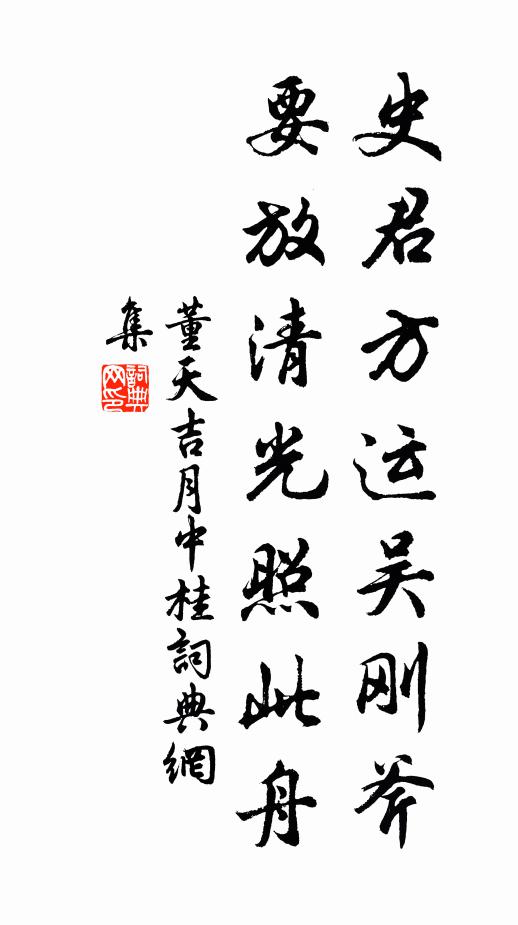 史君方运吴刚斧
要放清光照此舟
董天吉月中桂詞典網
集
詞典网印